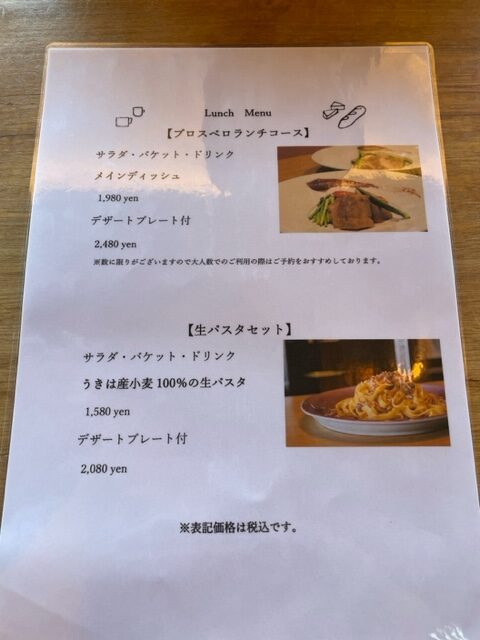 Lunch Menu
【プロスペロランチコース】
サラダ・バケット・ドリンク
メインディッシュ
1,980 yen
デザートプレート付
2,480 yen
※数に限りがございますので大人数でのご利用の際はご予約をおすすめしております。
【生パスタセット】
サラダ・バケット・ドリンク
うきは産小麦100%の生パスタ
1,580 yen
デザートプレート付
2,080 yen
※表記価格は税込です。